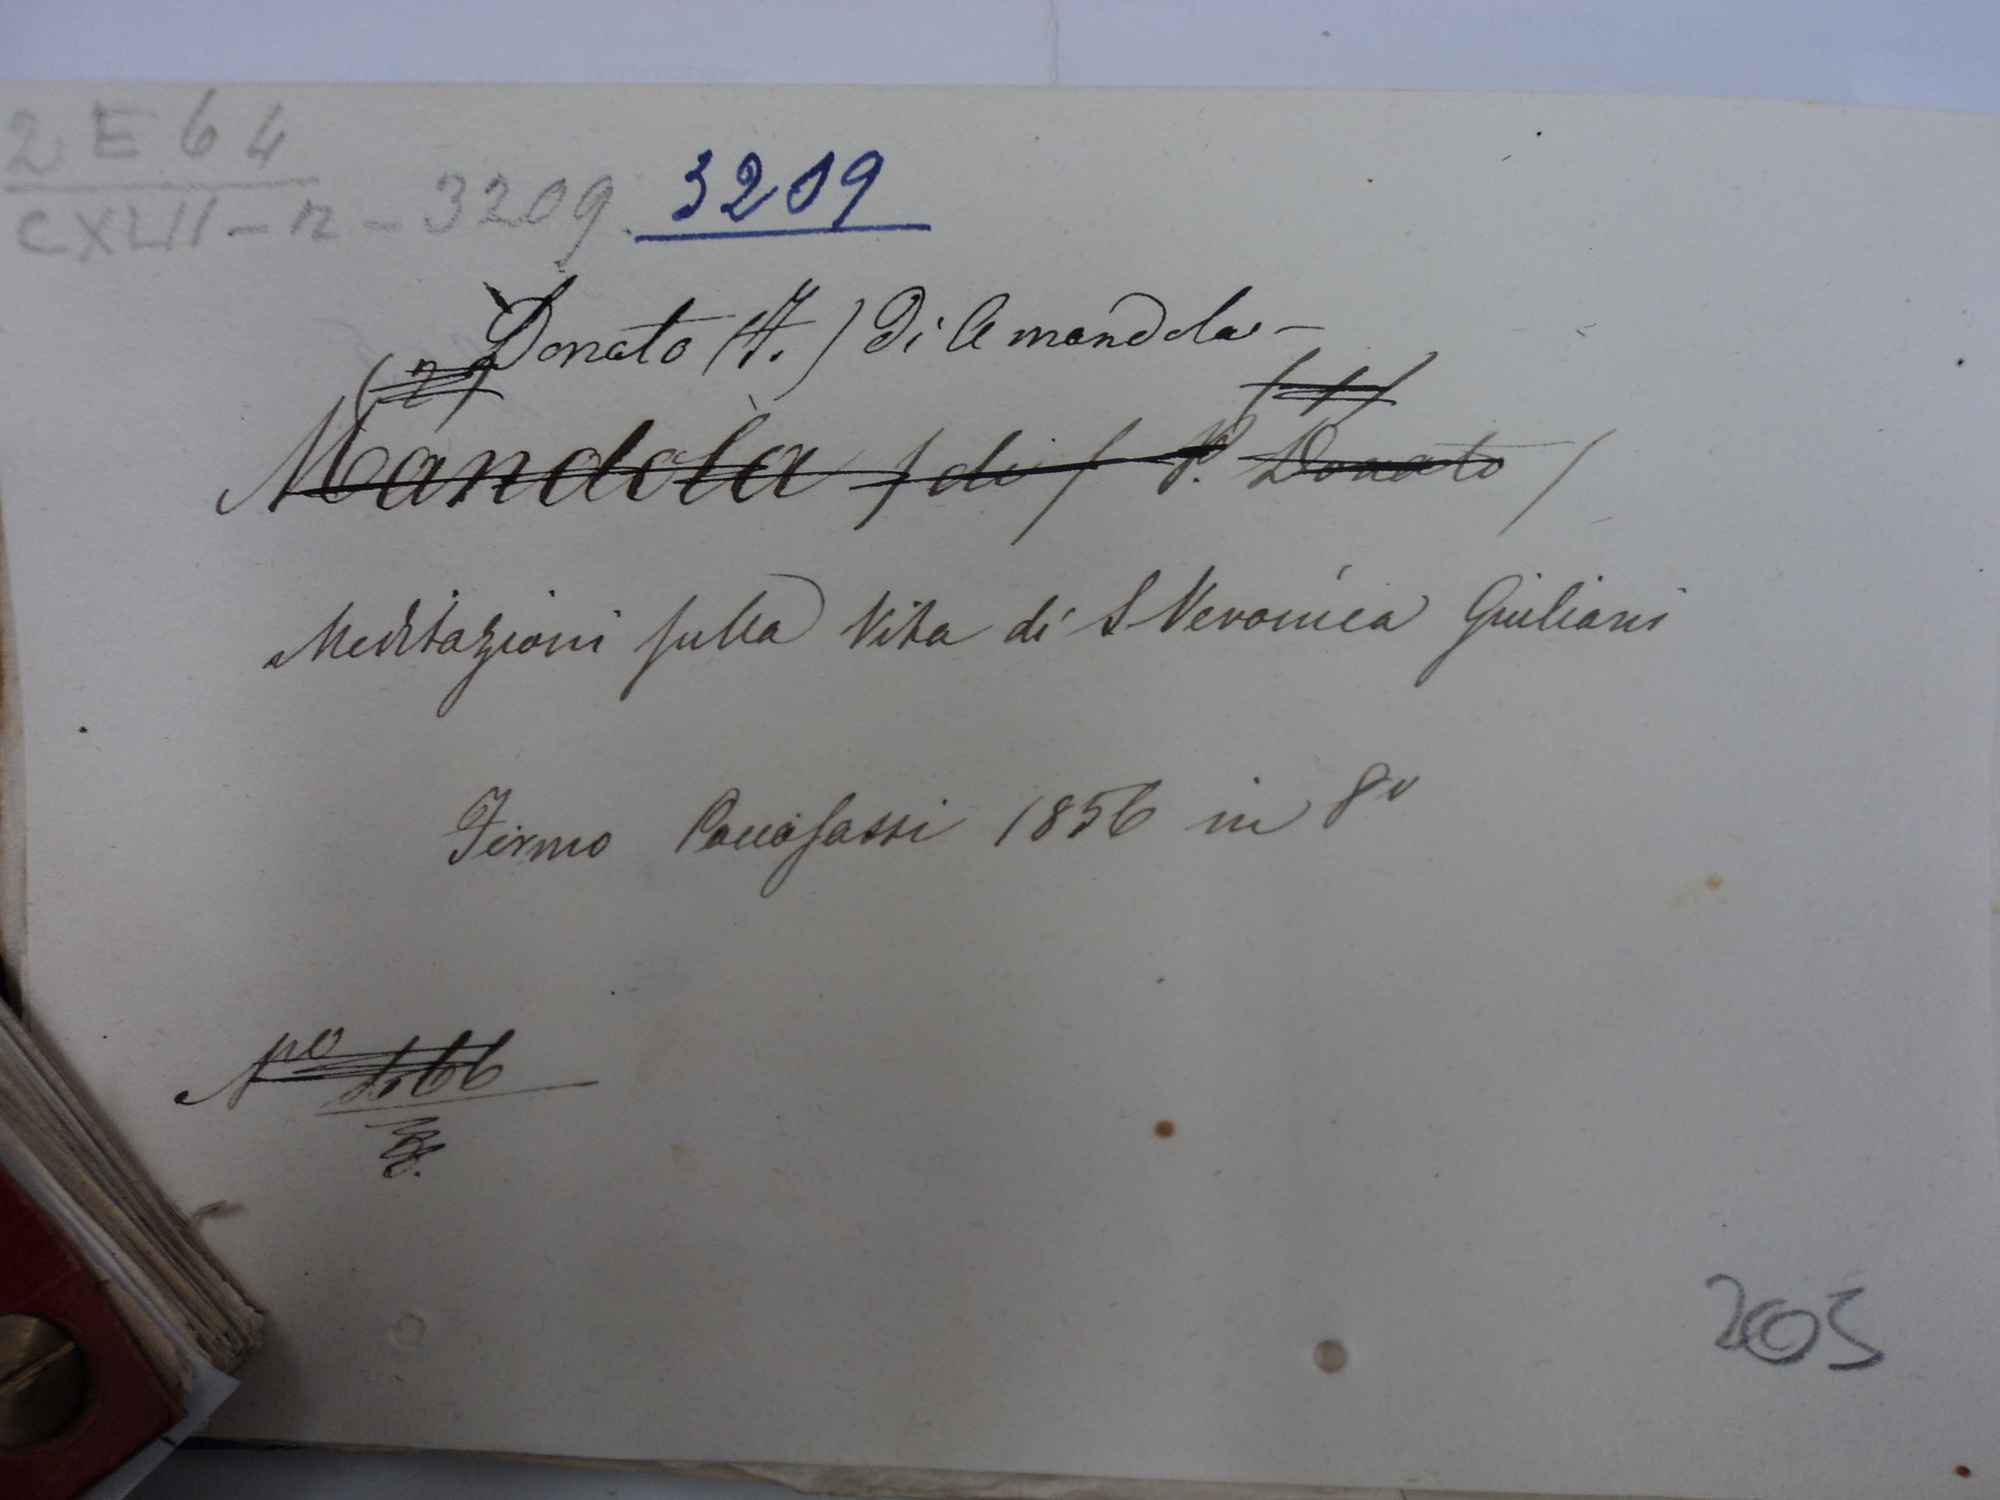 2 E 64
CXLII - n - 3209. 3209
Donato (F.) di Amandola -
(2) (1)
Mandola / di / P. Donato /
Meditazioni sulla Vita di S Veronica Giuliani
Fermo Paccasassi 1856 in 8º
Nº 
203